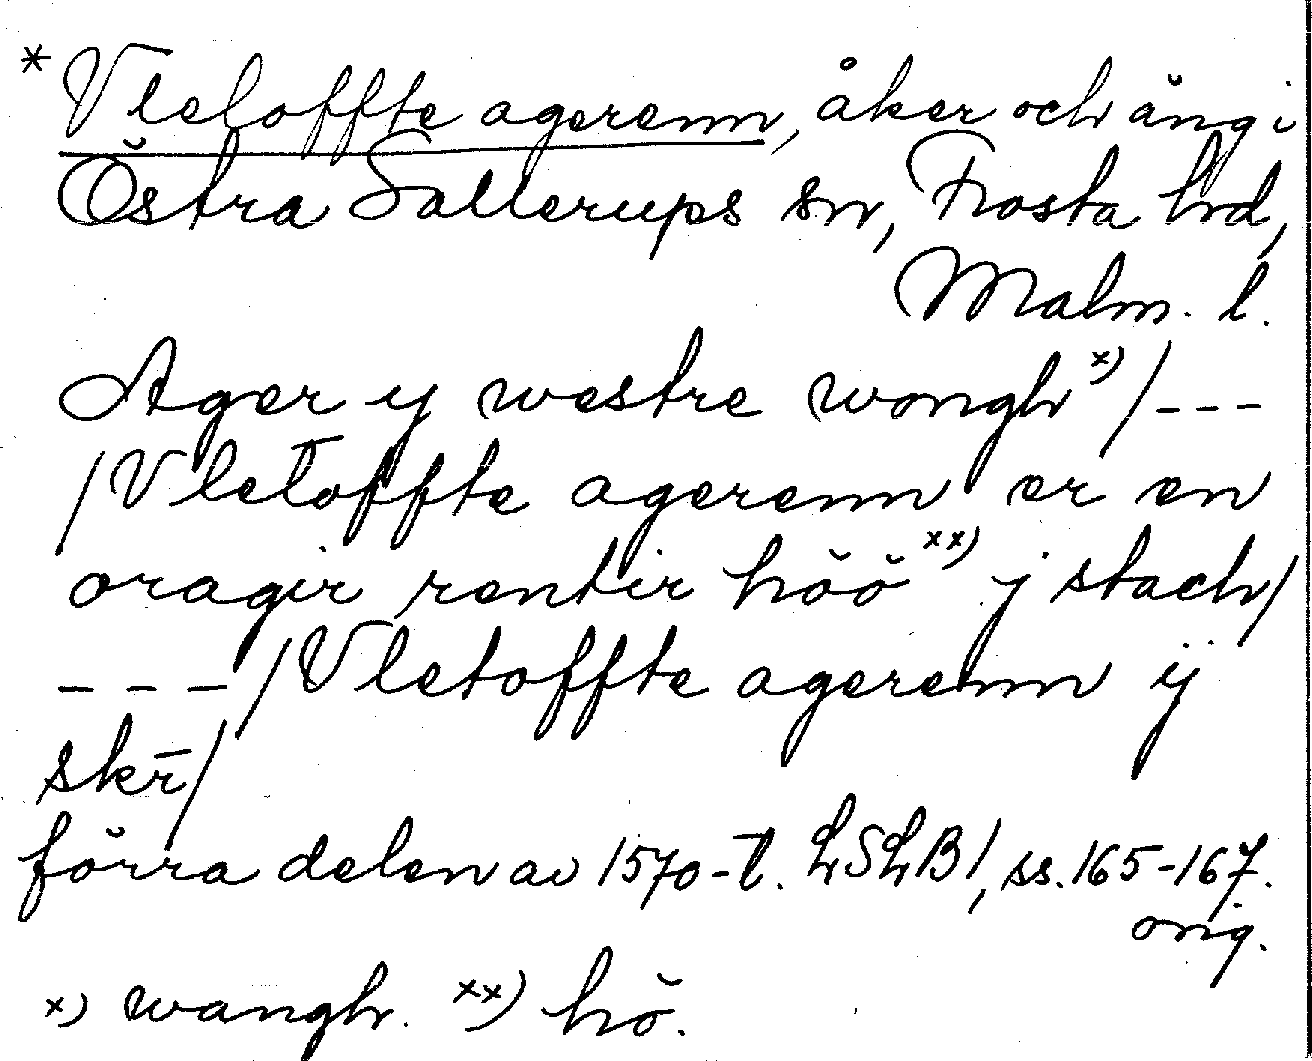 * Vletoffte agerenn, åker och äng i
Östra Sallerups sn, Frosta hd,
Malm. l.
Ager y westre wongh x) / ---
/ Vletoffte agerenn er en
oragir rentir höö xx) j stach /
--- / Vletoffte agerenn ij
skr̄ /
förra delen av 1570-t. LSLB 1, ss. 165-167.
orig.
x) wangh. xx) hö.